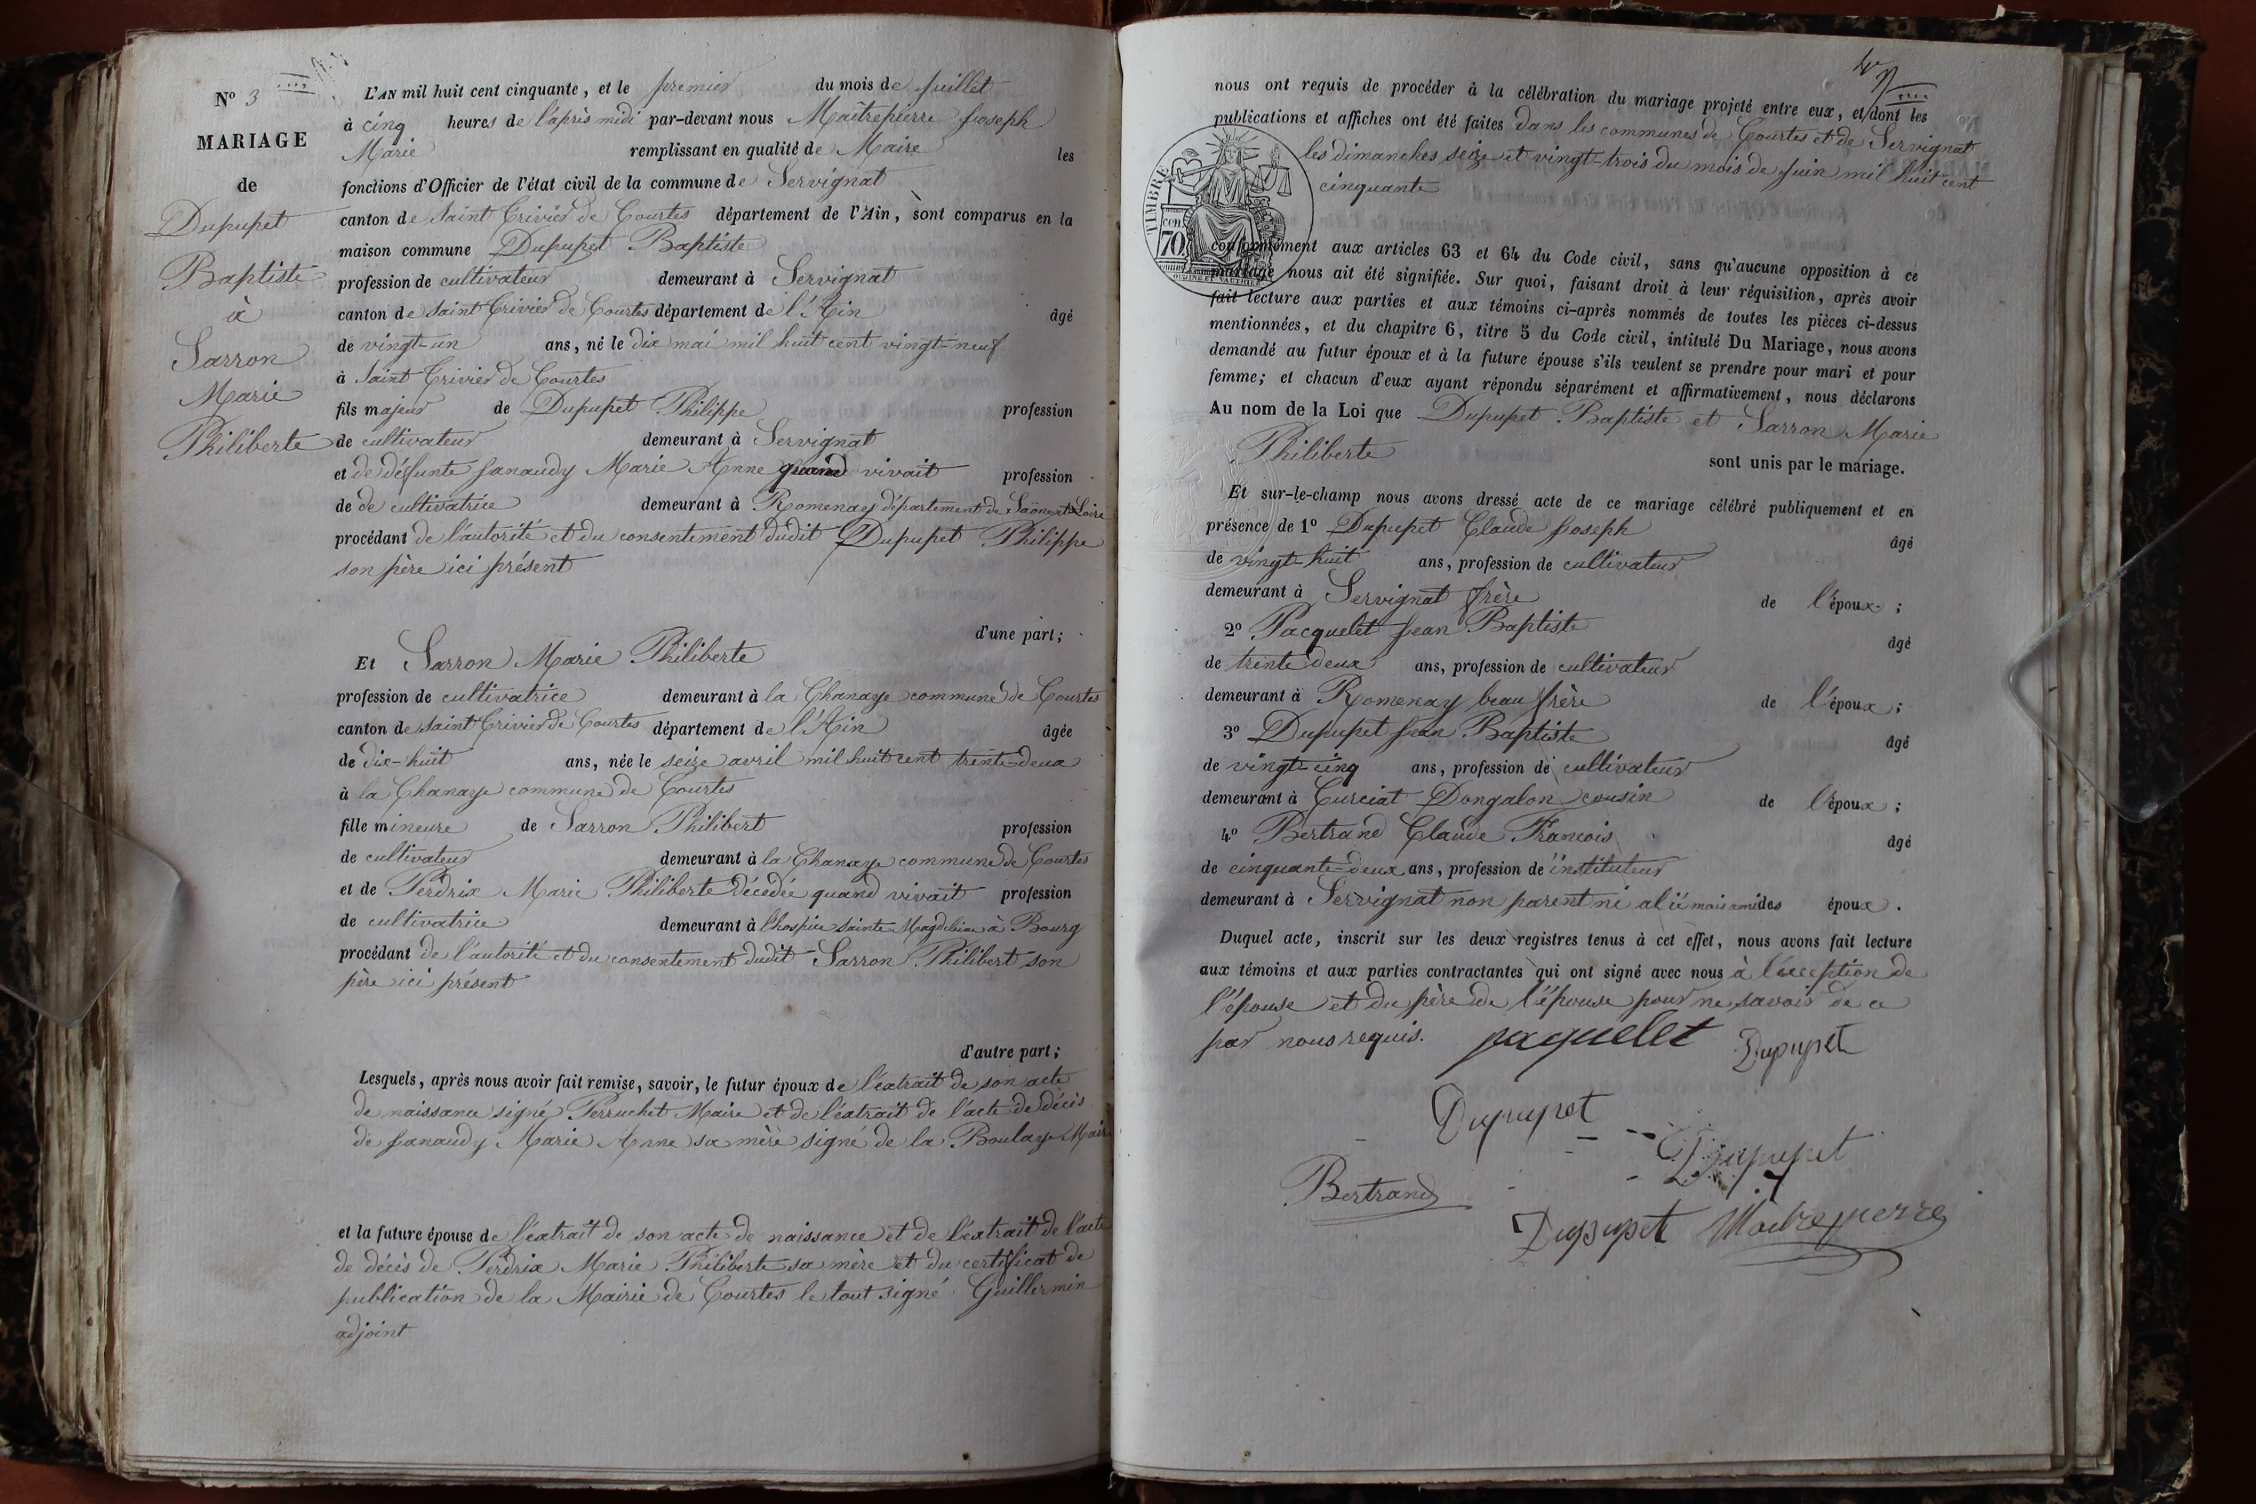 N° 3
MARIAGE
de
Dupupet
Baptiste
à
Sarron
Marie
Philiberte
L'AN mil huit cent cinquante, et le premier du mois de Juillet
à cinq heures de l'après midi par-devant nous Maîtrepierre Joseph
Marie remplissant en qualité de Maire les
fonctions d'Officier de l'état civil de la commune de Servignat
canton de Saint Trivier de Courtes département de l'Ain, sont comparus en la
maison commune Dupupet Baptiste
profession de cultivateur demeurant à Servignat
canton de Saint Trivier de Courtes département de l'Ain âgé
de vingt-un ans, né le dix mai mil huit cent vingt-neuf
à Saint Trivier de Courtes
fils majeur de Dupupet Philippe profession
de cultivateur demeurant à Servignat
et de défunte Janaudy Marie Anne quand vivait profession
de de cultivatrice demeurant à Romenay département de Saône et Loire
procédant de l'autorité et du consentement dudit Dupupet Philippe
son père ici présent
d'une part;
Et Sarron Marie Philiberte
profession de cultivatrice demeurant à la Chanaye commune de Courtes
canton de Saint Trivier de Courtes département de l'Ain âgée
de dix-huit ans, née le seize avril mil huit cent trente-deux
à la Chanaye commune de Courtes
fille mineure de Sarron Philibert profession
de cultivateur demeurant à la Chanaye commune de Courtes
et de Perdrix Marie Philiberte décédée quand vivait profession
de cultivatrice demeurant à l'hospice Sainte Magdeleine à Bourg
procédant de l'autorité et du consentement dudit Sarron Philibert son
père ici présent
d'autre part;
Lesquels, après nous avoir fait remise, savoir, le futur époux de l'extrait de son acte
de naissance signé Perruchet Maire et de l'extrait de l'acte de décès
de Janaudy Marie Anne sa mère signé de la Boulaye Maire
et la future épouse de l'extrait de son acte de naissance et de l'extrait de l'acte
de décès de Perdrix Marie Philiberte sa mère et du certificat de
publication de la Mairie de Courtes le tout signé Guillermin
adjoint
nous ont requis de procéder à la célébration du mariage projeté entre eux, et dont les
publications et affiches ont été faites dans les communes de Courtes et de Servignat
les dimanches seize et vingt-trois du mois de Juin mil huit cent
cinquante
TIMBRE
cen.
70
conformément aux articles 63 et 64 du Code civil, sans qu'aucune opposition à ce
mariage nous ait été signifiée. Sur quoi, faisant droit à leur réquisition, après avoir
fait lecture aux parties et aux témoins ci-après nommés de toutes les pièces ci-dessus
mentionnées, et du chapitre 6, titre 5 du Code civil, intitulé Du Mariage, nous avons
demandé au futur époux et à la future épouse s'ils veulent se prendre pour mari et pour
femme; et chacun d'eux ayant répondu séparément et affirmativement, nous déclarons
Au nom de la Loi que Dupupet Baptiste et Sarron Marie
Philiberte sont unis par le mariage.
Et sur-le-champ nous avons dressé acte de ce mariage célébré publiquement et en
présence de 1° Dupupet Claude Joseph âgé
de vingt-huit ans, profession de cultivateur
demeurant à Servignat frère de l'époux;
2° Pacquelet Jean Baptiste âgé
de trente deux ans, profession de cultivateur
demeurant à Romenay beau frère de l'époux;
3° Dupupet Jean Baptiste âgé
de vingt-cinq ans, profession de cultivateur
demeurant à Curciat Dongalon cousin de l'époux;
4° Bertrand Claude François âgé
de cinquante-deux ans, profession de instituteur
demeurant à Servignat non parent ni alié mais ami des époux.
Duquel acte, inscrit sur les deux registres tenus à cet effet, nous avons fait lecture
aux témoins et aux parties contractantes qui ont signé avec nous à l'exception de
l'épouse et du père de l'épouse pour ne savoir de ce
par nous requis. paquelet Dupupet
Dupupet
Dupupet
Bertrand
Dupupet Maitrepierre